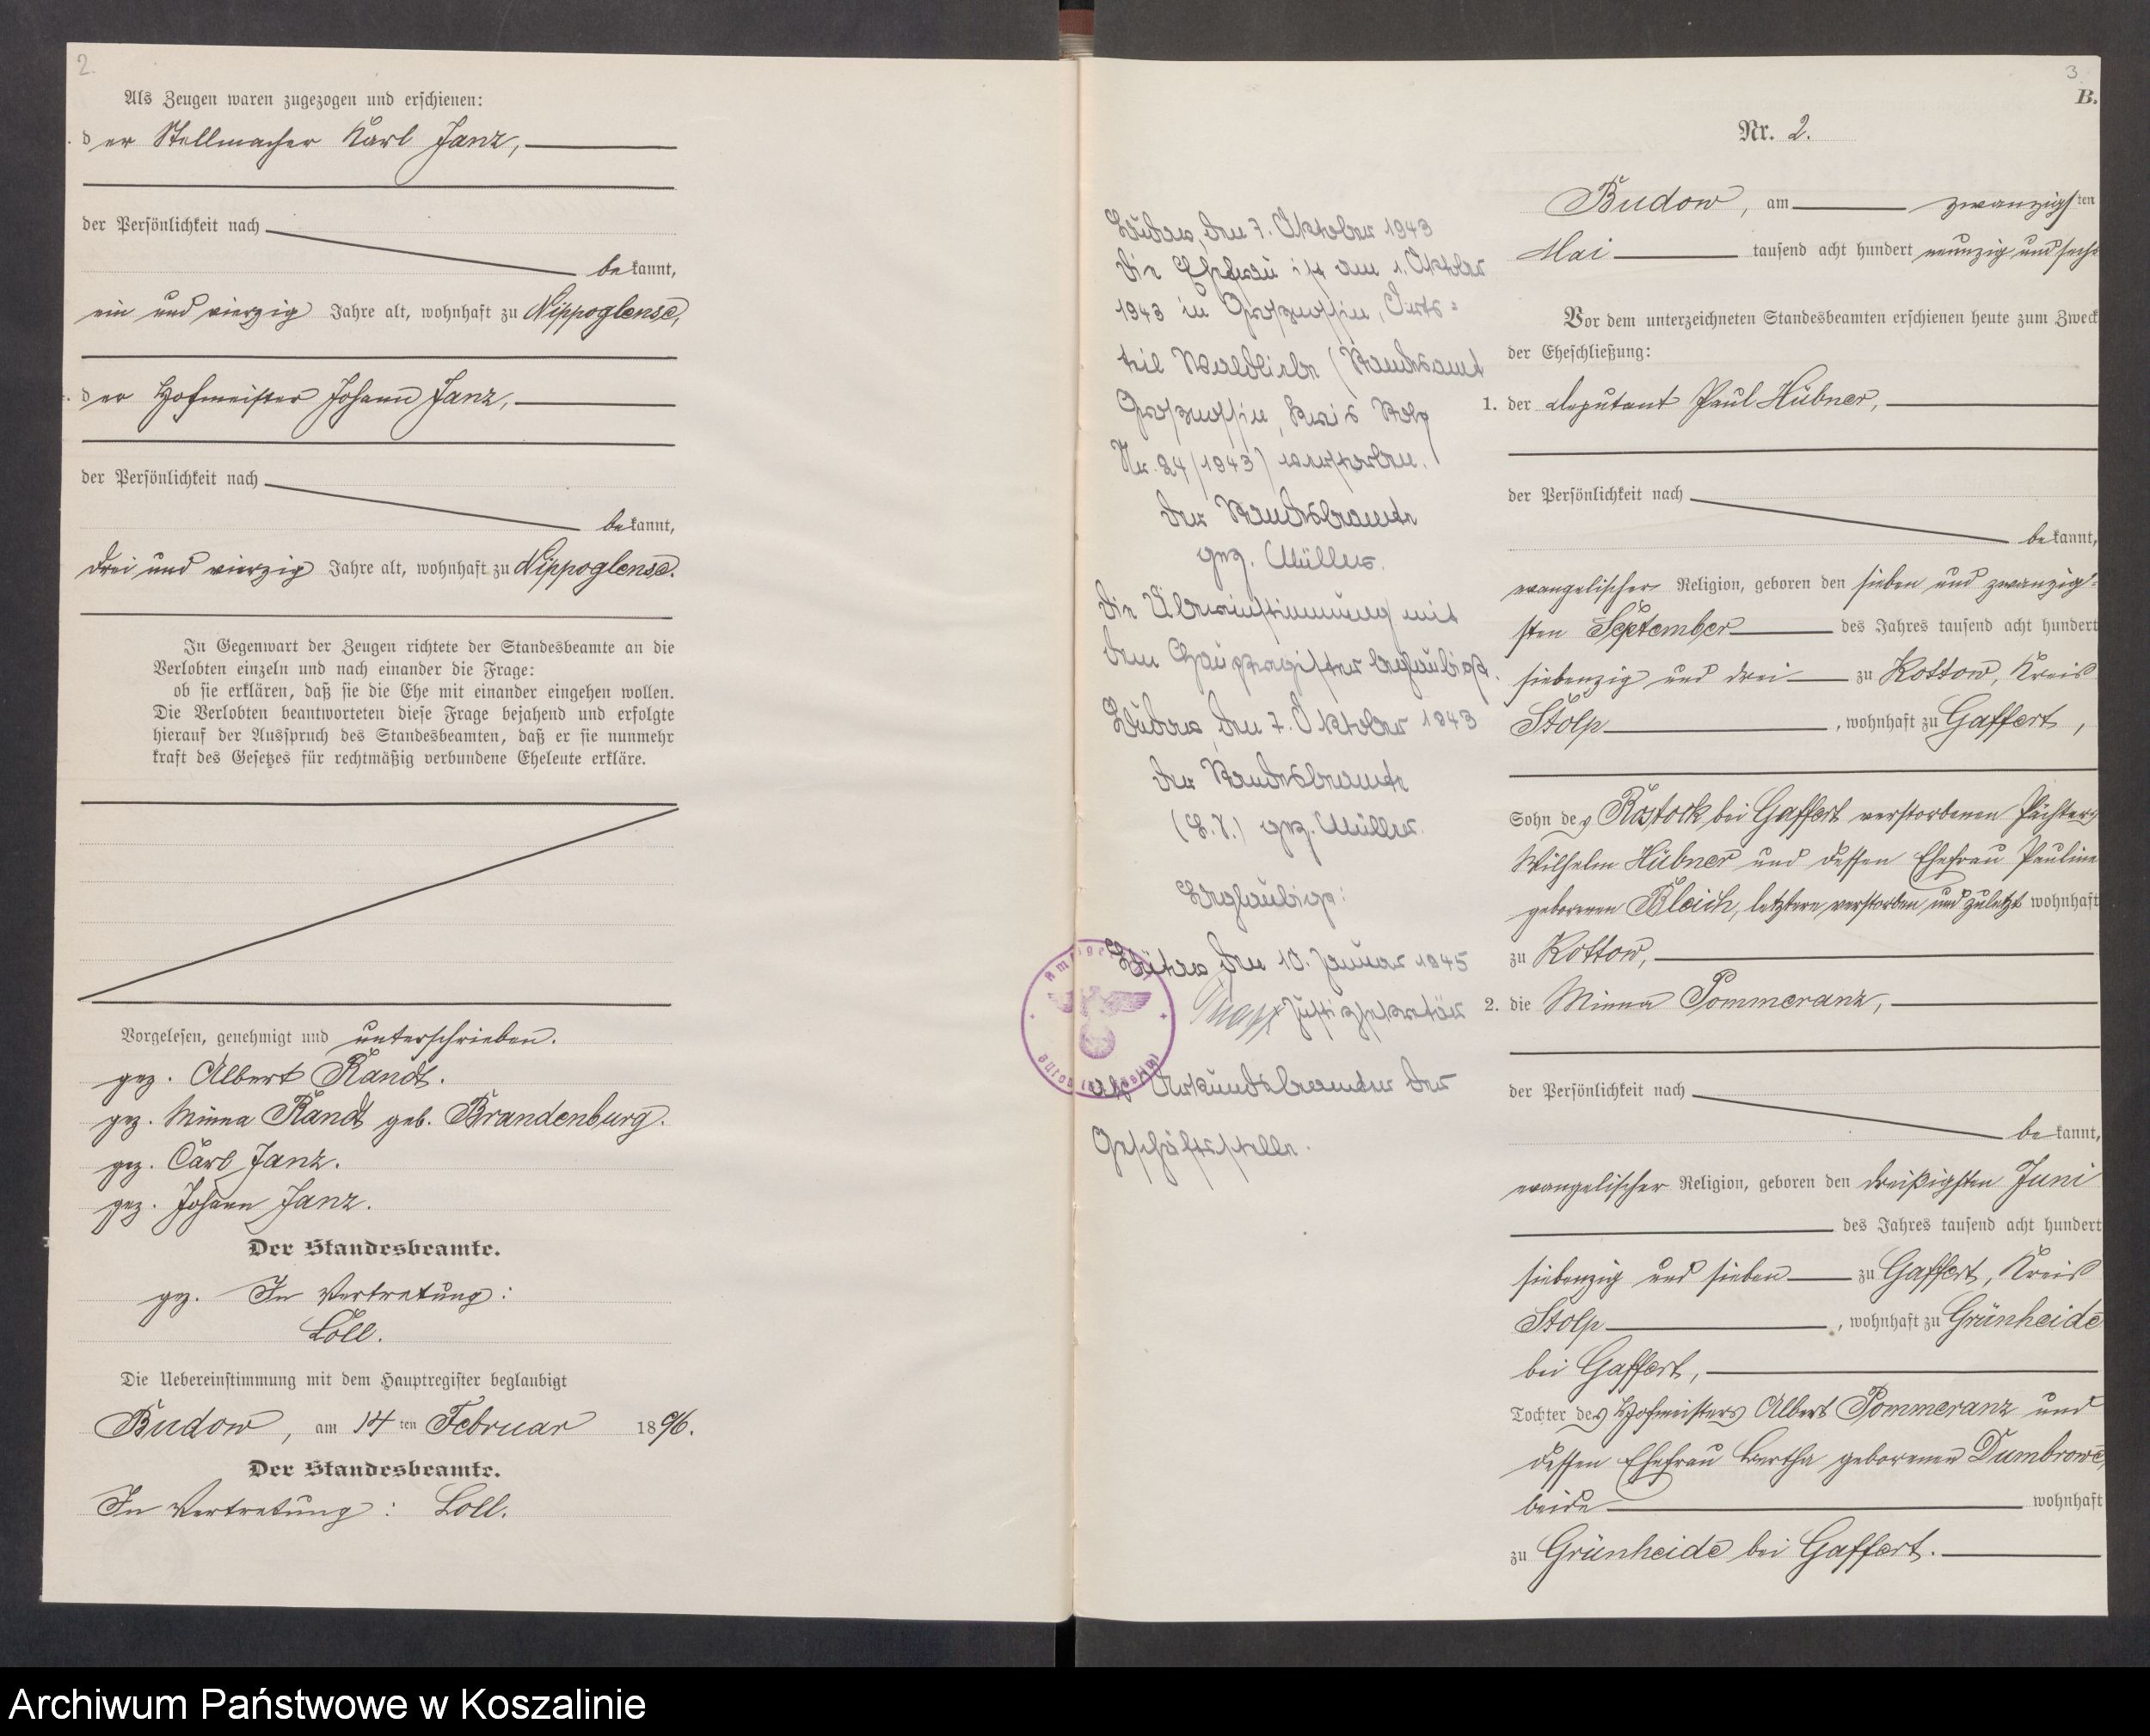 2.
Als Zeugen waren zugezogen und erschienen:
1. der Stellmacher Karl Janz,
der Persönlichkeit nach
bekannt,
ein und vierzig Jahre alt, wohnhaft zu Nippoglense,
2. der Hofmeister Johann Janz,
der Persönlichkeit nach
bekannt,
drei und vierzig Jahre alt, wohnhaft zu Nippoglense.
In Gegenwart der Zeugen richtete der Standesbeamte an die
Verlobten einzeln und nach einander die Frage:
ob sie erklären, daß sie die Ehe mit einander eingehen wollen.
Die Verlobten beantworteten diese Frage bejahend und erfolgte
hierauf der Ausspruch des Standesbeamten, daß er sie nunmehr
kraft des Gesetzes für rechtmäßig verbundene Eheleute erkläre.
Vorgelesen, genehmigt und unterschrieben.
gez. Albert Randt.
gez. Minna Randt geb. Brandenburg.
gez. Carl Janz.
gez. Johann Janz.
Der Standesbeamte.
gez. In Vertretung:
Loll.
Die Uebereinstimmung mit dem Hauptregister beglaubigt
Budow, am 14ten Februar 1896.
Der Standesbeamte.
In Vertretung: Loll.
Budow, den 7. Oktober 1943
Die Ehefrau ist am 1. Oktober
1943 in Großnossin, Orts=
teil Waldliebe (Standesamt
Großnossin, Kreis Stolp
Nr. 24/1943) verstorben.
Der Standesbeamte
gez. Müller.
Die Übereinstimmung mit
dem Hauptregister beglaubigt.
Budow, den 7. Oktober 1943
Der Standesbeamte
(L.S.) gez. Müller.
Beglaubigt:
Bütow, den 10. Januar 1945
Justizsekretär
als Urkundsbeamter der
Geschäftsstelle.
Amtsgericht
Bütow (Bz. Köslin)
3
B.
Nr. 2.
Budow, am zwanzigsten
Mai tausend acht hundert neunzig und sechs
Vor dem unterzeichneten Standesbeamten erschienen heute zum Zweck
der Eheschließung:
1. der Deputant Paul Hübner,
der Persönlichkeit nach
bekannt,
evangelischer Religion, geboren den sieben und zwanzig=
sten September des Jahres tausend acht hundert
siebenzig und drei zu Kottow, Kreis
Stolp, wohnhaft zu Gaffert,
Sohn des Rostock bei Gaffert verstorbenen Pächters
Wilhelm Hübner und dessen Ehefrau Pauline
geborenen Bleich, letztere verstorben und zuletzt wohnhaft
zu Kottow,
2. die Minna Pommeranz,
der Persönlichkeit nach
bekannt,
evangelischer Religion, geboren den dreißigsten Juni
des Jahres tausend acht hundert
siebenzig und sieben zu Gaffert, Kreis
Stolp, wohnhaft zu Grünheide
bei Gaffert,
Tochter des Hofmeisters Albert Pommeranz und
dessen Ehefrau Bertha geborenen Dumbrowe,
beide wohnhaft
zu Grünheide bei Gaffert.
Archiwum Państwowe w Koszalinie